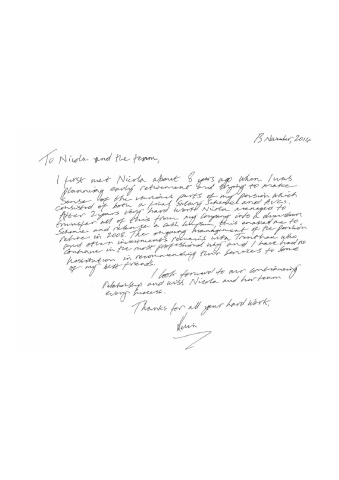 13 November, 2014
To Nicola and the team,
I first met Nicola about 8 years ago when I was
planning early retirement and trying to make
sense of the various parts of my pension which
consisted of both a final Salary Scheme and AVCs.
After 2 years very hard work Nicola managed to
transfer all of this from my company into a drawdown
Scheme and release a cash this enabled me to
retire in 2008. The ongoing management of the pension
and other investments remains with Trinathan who
continue in the most professional way and I have had no
hesitation in recommending their services to some
of my best friends.
I look forward to our continuing
relationship and wish Nicola and her team
every success.
Thanks for all your hard work,